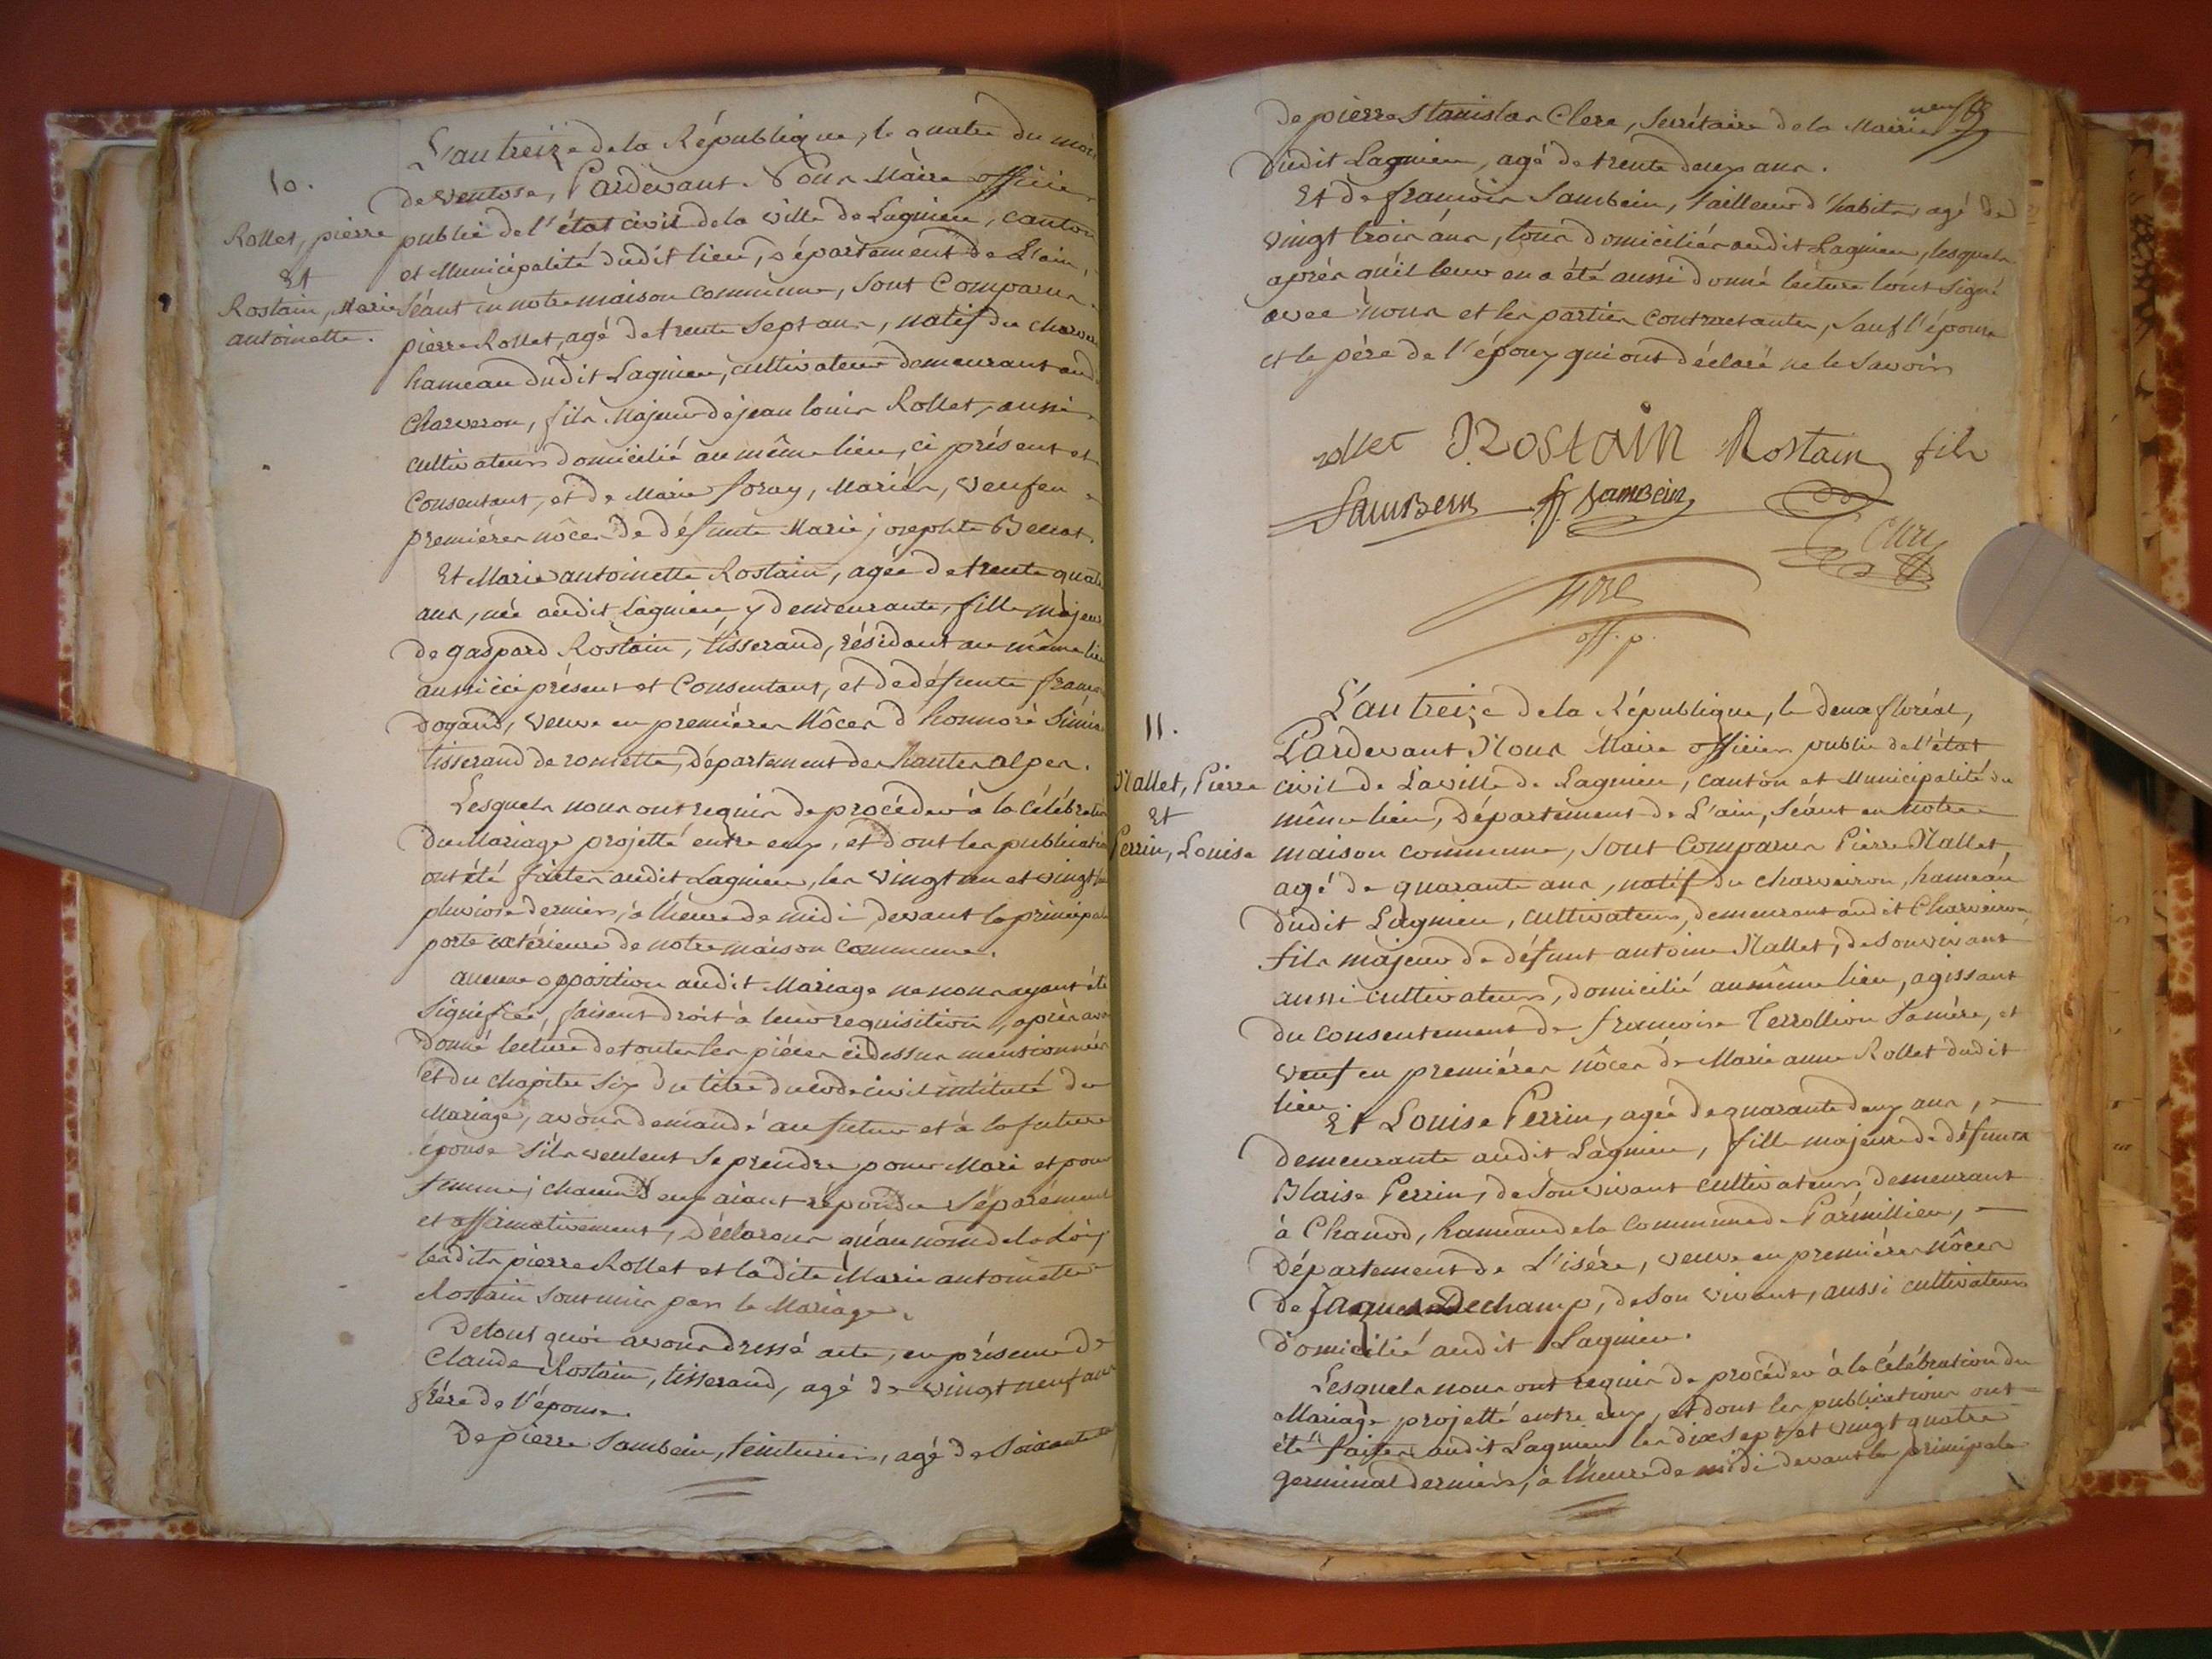 10.
Rollet, pierre
Et
Rostain, Marie
antoinette.
L'an treize de la République, le quatre du mois
de ventose, Pardevant Nous Maire officier
public de l'état civil de la ville de Lagnieu, canton
et Municipalité dudit lieu, département de L'ain,
séant en notre maison commune, sont Comparus
pierre Rollet, agé de trente sept ans, natif du charve
hameau dudit Lagnieu, cultivateur demeurant aud
Charveron, fils Majeur de jean louis Rollet, aussi
cultivateur domicilié au même lieu, ci présent et
consentant, et de Marie foray, Mariés, veuf en
premières nôces de défunte Marie josephte
Et Marie antoinette Rostain, agée de trente quatre
ans, née audit Lagnieu, y demeurante, fille majeure
de gaspard Rostain, tisserand, résidant au même lieu
aussi ici présent et Consentant, et de défunte
dogand, veuve en premières Nôces d'honnoré
tisserand de romette, département des hautes alpes.
Lesquels nous ont requis de procéder à la célébration
du Mariage projetté entre eux, et dont les publications
ont été faites audit Lagnieu, les vingt un et vingt
pluviose dernier, à l'heure de midi, devant la principale
porte extérieure de notre maison commune.
aucune opposition audit Mariage ne nous ayant été
signifiée, faisant droit à leur requisition, après avoir
donné lecture de toutes les pièces cidessus mentionnées
et du chapitre six du titre du code civil intitulé du
Mariage, avons demandé au futur et à la future
épouse s'ils veulent se prendre pour Mari et pour
femme; chacun d'eux aiant répondu séparément
et affirmativement, Déclarons qu'au nom de la Loi,
ledit pierre Rollet et ladite Marie antoinette
Rostain sont unis par le Mariage.
De tout quoi avons dressé acte, en présence de
Claude Rostain, tisserand, agé de vingt neuf ans
frère de l'épouse.
De pierre Sambein, teinturier, agé de soixante
neuf
de pierre stanislas Clerc, secrétaire de la Mairie
dudit Lagnieu, agé de trente deux ans.
Et de françois Sambein, tailleur d'habits, agé de
vingt trois ans, tous domiciliés audit Lagnieu, lesquels
après qu'il leur en a été aussi donné lecture l'ont signé
avec nous et les parties contractantes, sauf l'épouse
et le père de l'époux qui ont déclaré ne le savoir
rollet ROSTAIN Rostain fils
SamBein f SamBein
Clerc
off. p.
11.
Nallet, Pierre
Et
Perrin, Louise
L'an treize de la République, le deux floréal,
Pardevant Nous Maire officier public de l'état
civil de La ville de Lagnieu, canton et Municipalité du
même lieu, Département de L'ain, séant en notre
maison commune, sont Comparus Pierre Nallet,
agé de quarante ans, natif du charveiron, hameau
dudit Lagnieu, cultivateur, demeurant audit Charveiron,
fils majeur de défunt antoine Nallet, de son vivant
aussi cultivateur, domicilié au même lieu, agissant
du consentement de françoise Terrollion sa mère, et
veuf en premières nôces de Marie anne Rollet dudit
lieu.
Et Louise Perrin, agée de quarante deux ans,
demeurante audit Lagnieu, fille majeure de défunt
Blaise Perrin, de son vivant cultivateur demeurant
à Chanod, hameau de la commune de Parmillieu,
Département de L'isère, veuve en premières nôces
de Jaques Dechamp, de son vivant, aussi cultivateur
domicilié audit Lagnieu.
Lesquels nous ont requis de procéder à la célébration du
Mariage projetté entre eux, et dont les publications ont
été faites audit Lagnieu les dix sept et vingt quatre
germinal dernier, à l'heure de midi devant la principale